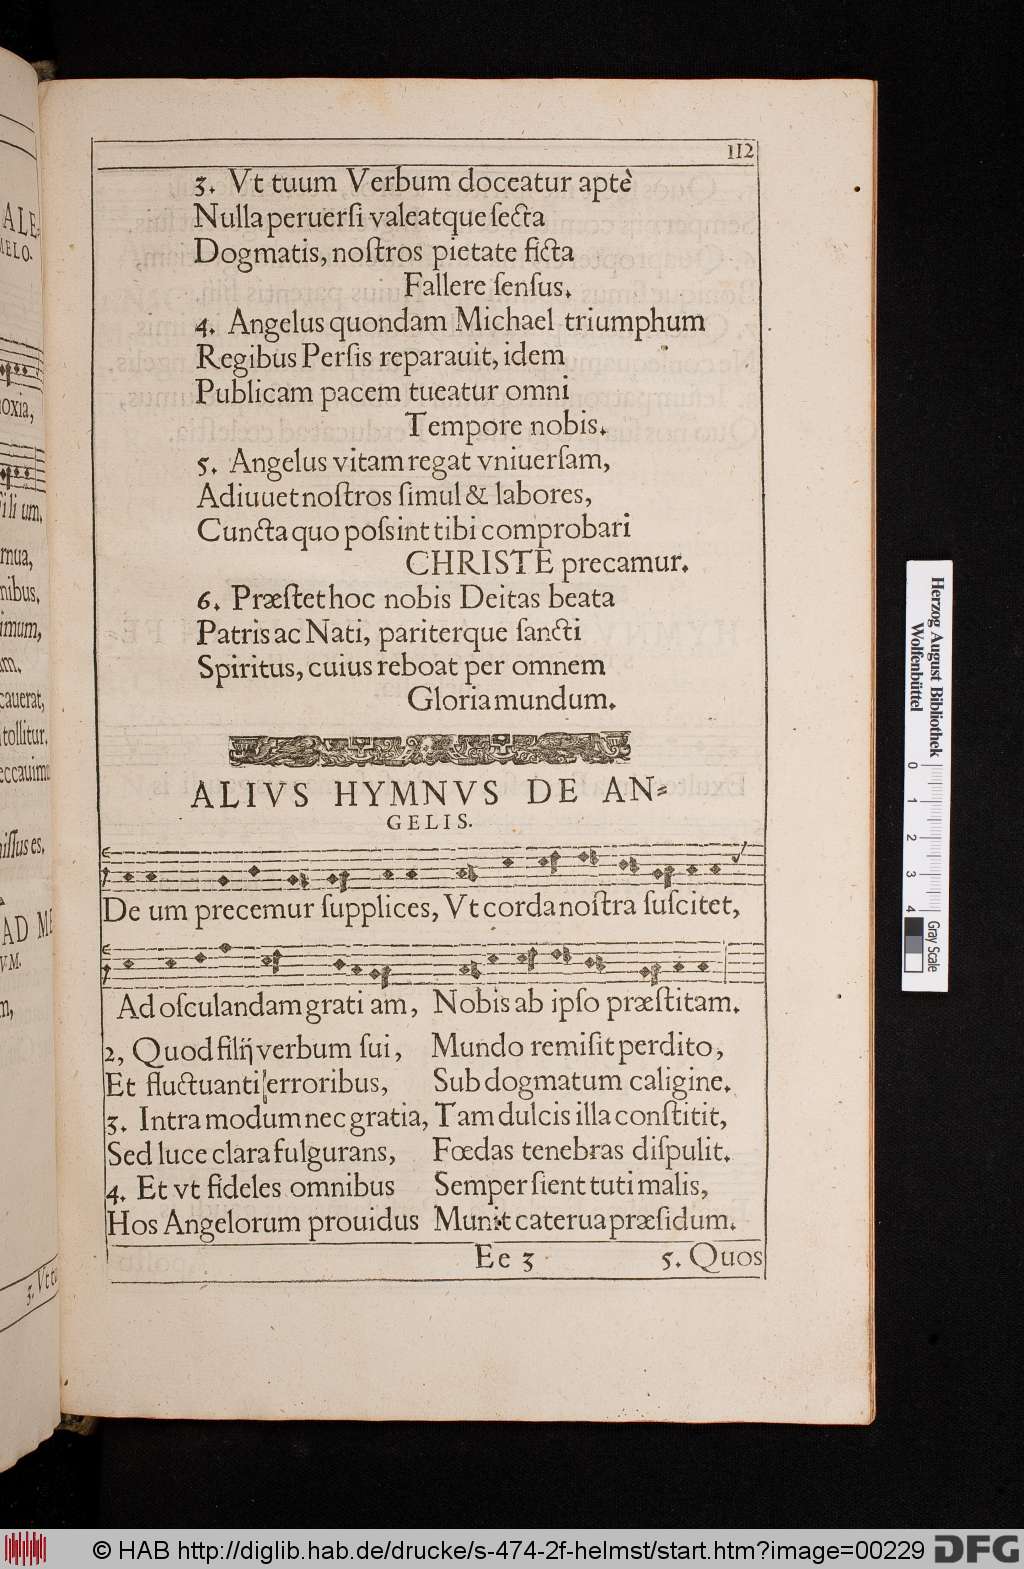 112
3. Vt tuum Verbum doceatur aptè
Nulla peruerſi valeatque ſecta
Dogmatis, noſtros pietate ficta
Fallere ſenſus.
4. Angelus quondam Michael triumphum
Regibus Perſis reparauit, idem
Publicam pacem tueatur omni
Tempore nobis.
5. Angelus vitam regat vniuerſam,
Adiuuet noſtros ſimul & labores,
Cuncta quo poſsint tibi comprobari
CHRISTE precamur.
6. Præſtet hoc nobis Deitas beata
Patris ac Nati, pariterque ſancti
Spiritus, cuius reboat per omnem
Gloria mundum.
ALIVS HYMNVS DE AN⸗
GELIS.
De um precemur ſupplices, Vt corda noſtra ſuſcitet,
Ad oſculandam grati am, Nobis ab ipſo præſtitam.
2, Quod filij verbum ſui, Mundo remiſit perdito,
Et fluctuanti erroribus, Sub dogmatum caligine.
3. Intra modum nec gratia, Tam dulcis illa conſtitit,
Sed luce clara fulgurans, Fœdas tenebras diſpulit.
4. Et vt fideles omnibus Semper ſient tuti malis,
Hos Angelorum prouidus Munit caterua præſidum.
Ee 3 5. Quos
ALE⸗
MELO.
oxia,
ili um,
mua,
nibus.
imum,
am.
cauerat,
tollitur.
eccauimus
iſſus es.
AD ME
VM.
m,
3. Vt tu
Herzog August Bibliothek
Wolfenbüttel
0 1 2 3 4
Gray Scale
© HAB http://diglib.hab.de/drucke/s-474-2f-helmst/start.htm?image=00229
DFG